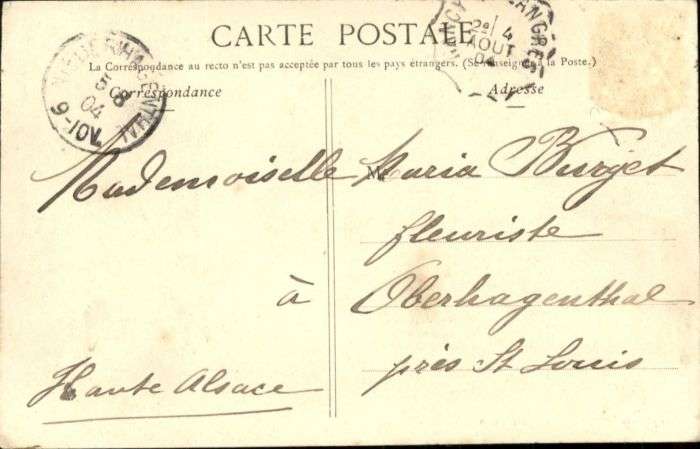 CARTE POSTALE
La Correspondance au recto n'est pas acceptée par tous les pays étrangers. (Se renseigner à la Poste.)
Correspondance
Adresse
LANGRES
2e / 4
AOUT
04
5 8
04
9-10V
Mademoiselle Maria Burget
fleuriste
à Oberhagenthal
près St Louis
Haute Alsace